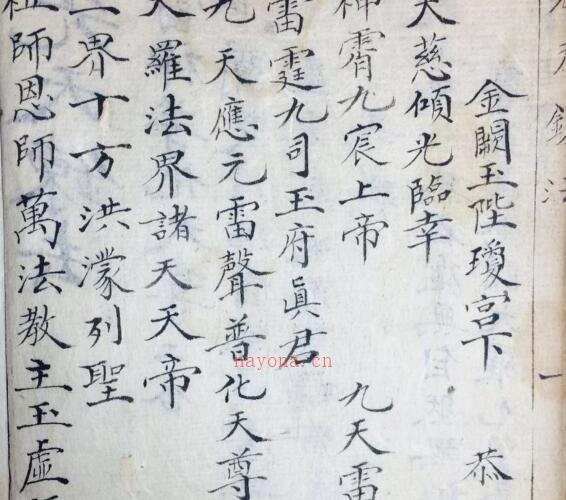 一
金闕玉陛瓊宮下 恭
大慈傾光臨幸
神霄九宸上帝 九天雷
雷霆九司玉府眞君
九天應元雷聲普化天尊
大羅法界諸天天帝
界十方洪濛列聖
祖師恩師萬法教主玉虛
hayona.cn